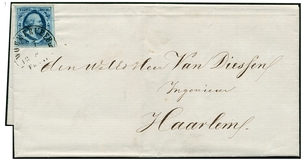 den Weled. Heer Van Diessen
Ingenieur
Haarlem